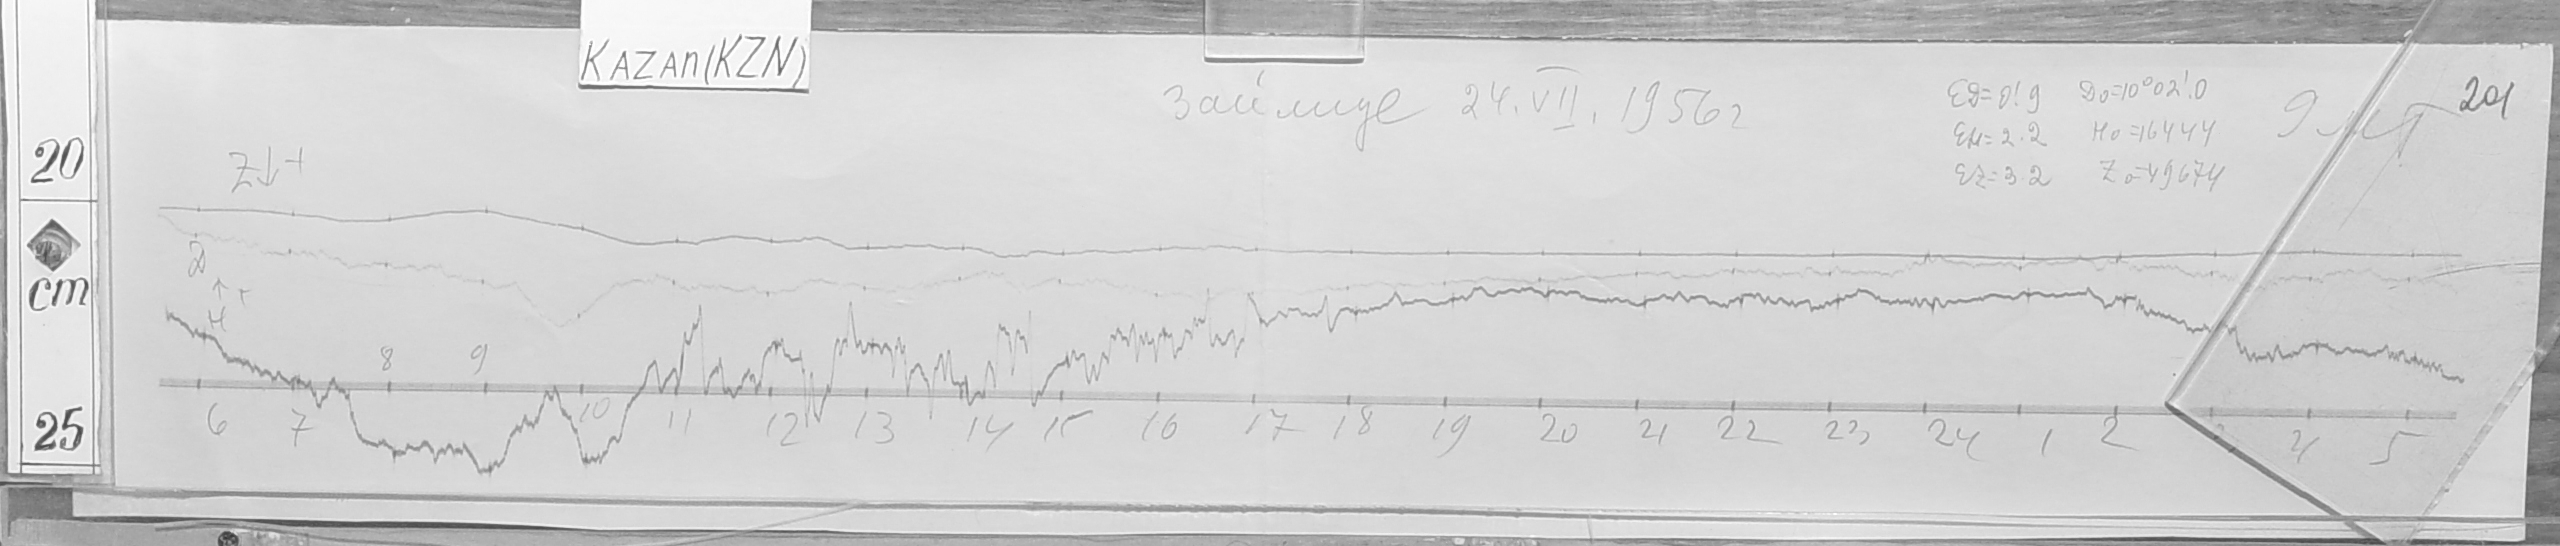 KAZAN (KZN)
Займище 24.VII.1956г
ED=0!9 D0=10°02!0
EH=2.2 H0=16444
EZ=3.2 Z0=49674
201
20
cm
25
Z↓+
D
↑+
H
8 9
6 7 10 11 12 13 14 15 16 17 18 19 20 21 22 23 24 1 2 3 4 5